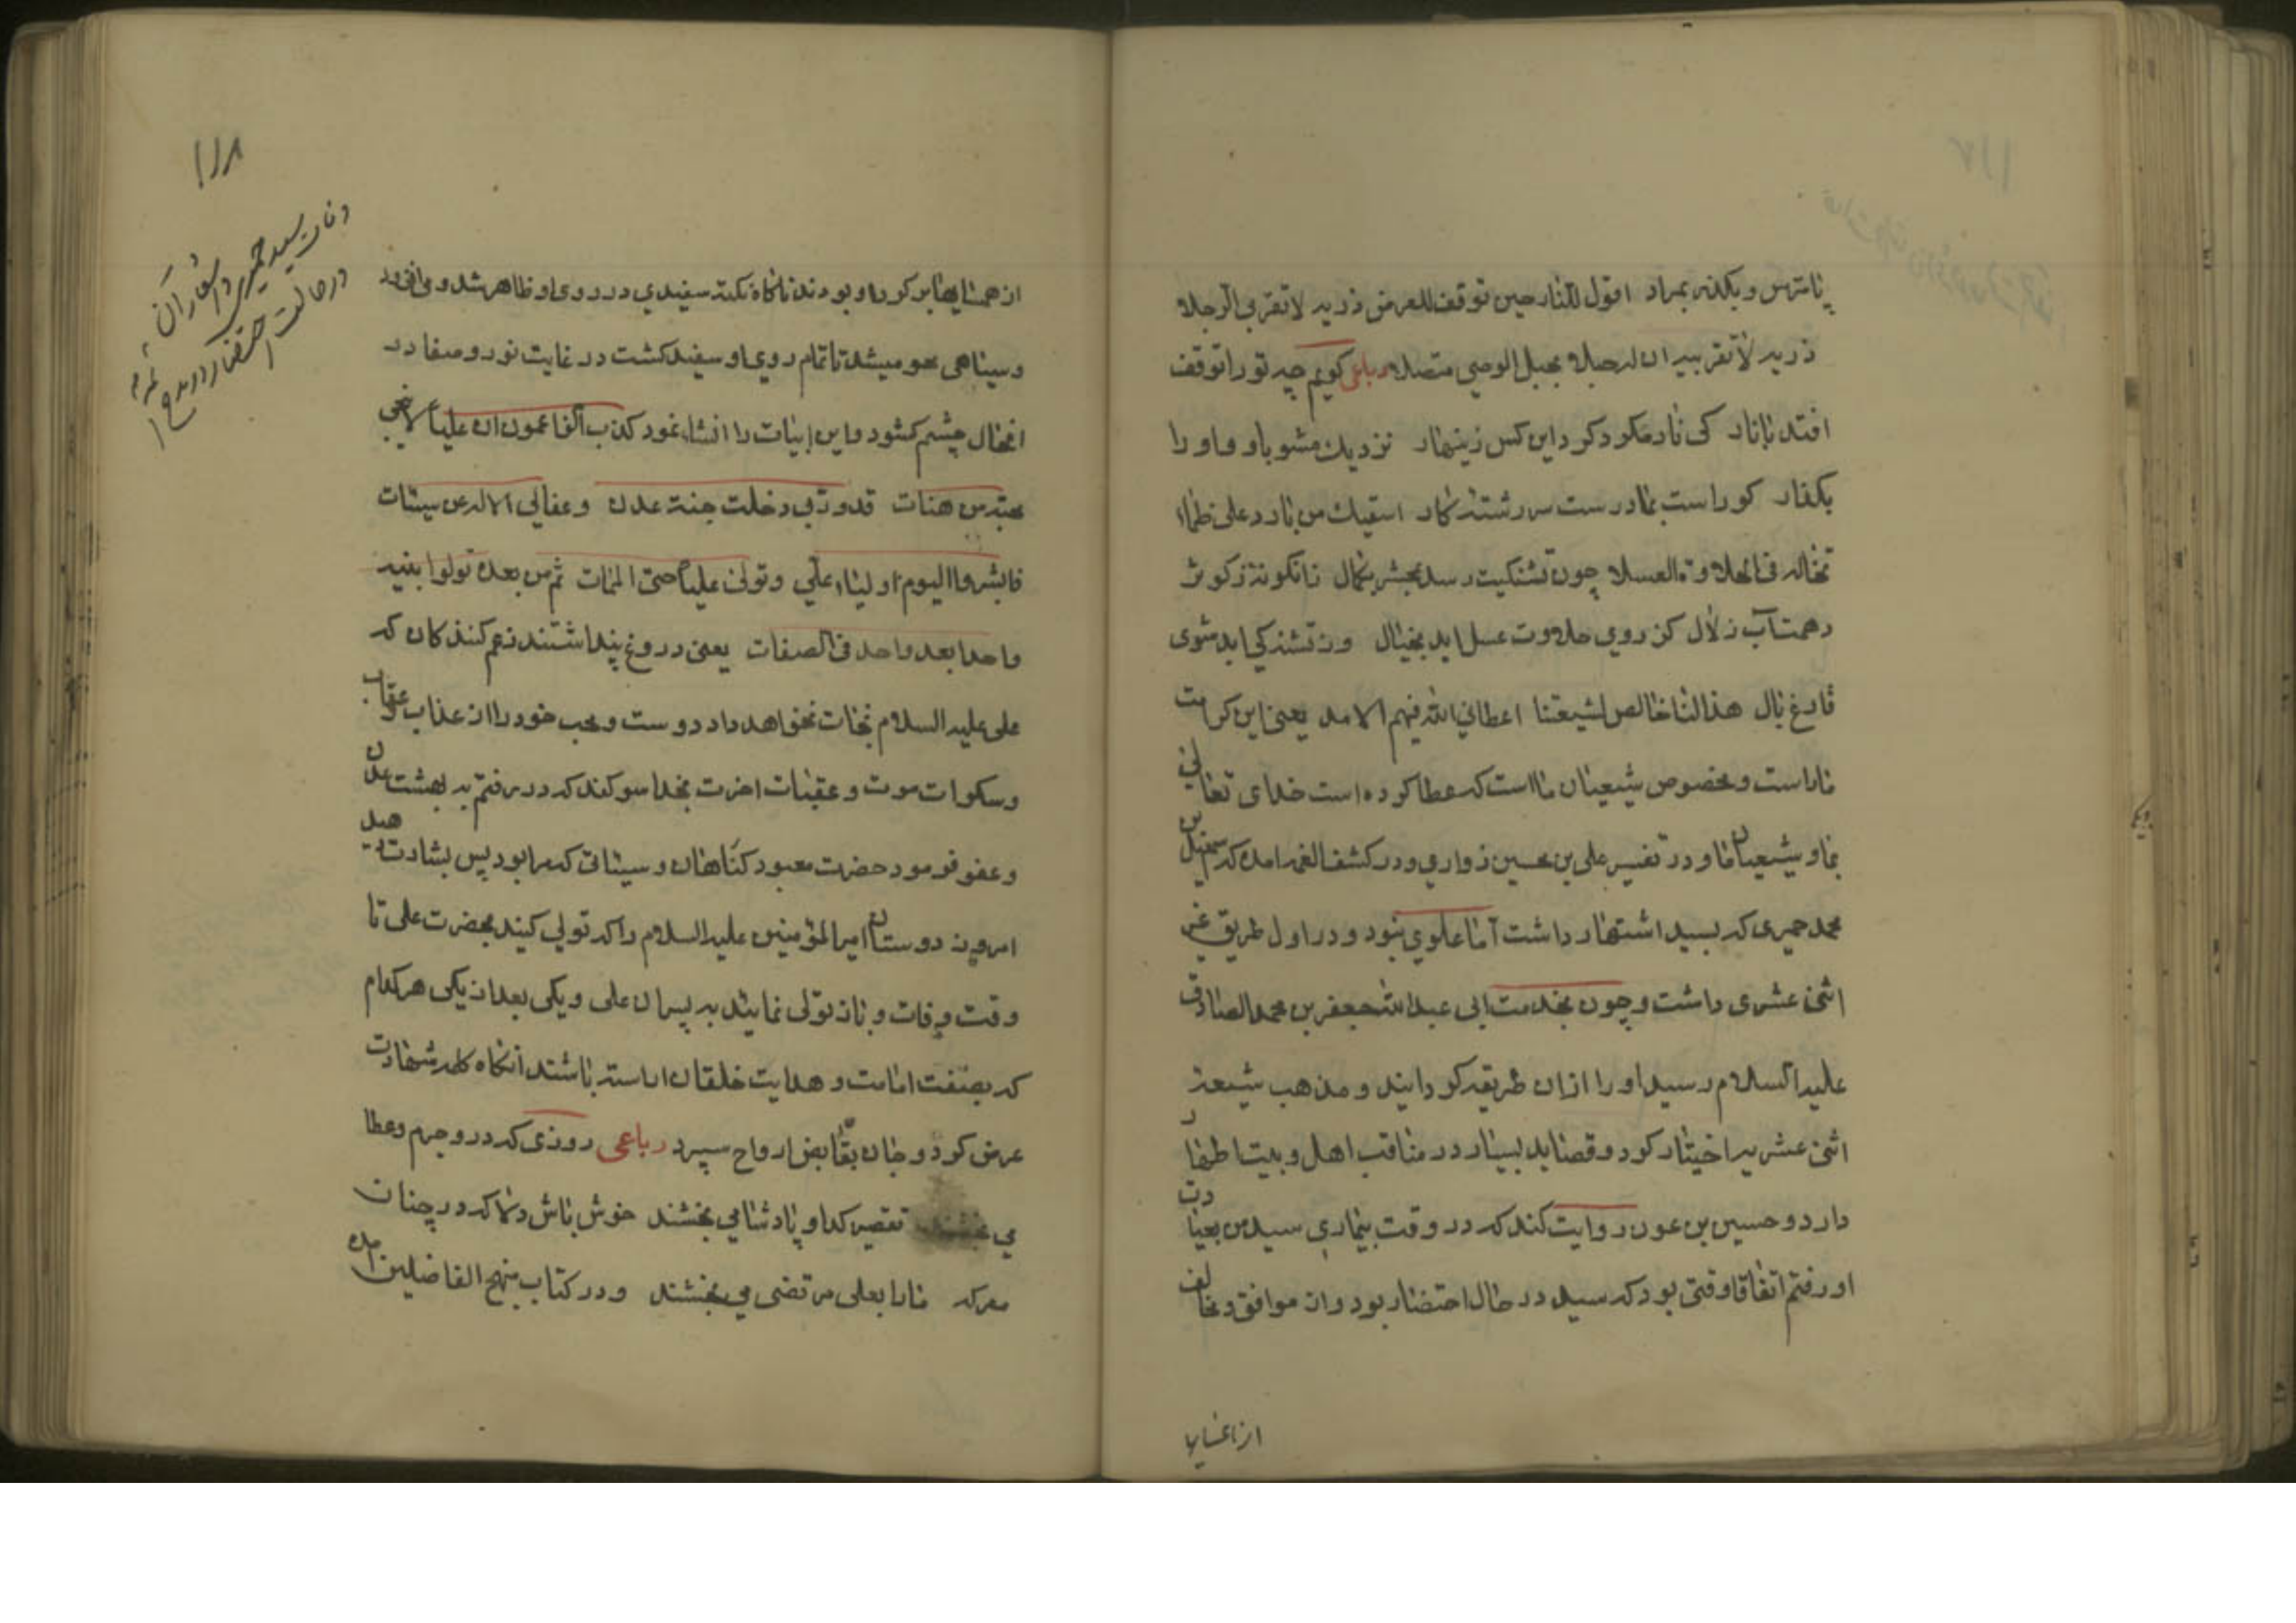 نامترس و بکذر بمراد اقول للنار حین توقف للعرض ذریه لا تقربی الرجلا
ذریه لا تقربیه ان له حبلا بحبل الوصی متصلا رباعی کویم چه تو را توقف
افتد با نار کی نار مکرد کرد این کس زینهار نزدیك مشو باو و او را
بکذار کو راست بما درست سر رشته کار اسقیك من بارد علی ظماء
تخاله فی الحلاوة العسلا چون تشنکیت رسد بحشر بکمال زانکونه ز کوثر
دهمت آب زلال کز روی حلاوت عسل اید بخیال وز تشنکی اید شوی
فارغ بال هذا لنا خالص لشیعتنا اعطانی الله فیهم الامد یعنی این کرامت
ما راست و مخصوص شیعیان ما است که عطا کرده است خدای تعالی
بما و شیعیان ما و در تفسیر علی بن حسین زواری و در کشف الغمه امده که سمعیل بن
محمد حمیری که بسید اشتهار داشت اما علوی نبود و در اول طریق غیر
اثنی عشری داشت و چون بخدمت ابی عبد الله جعفر بن محمد الصادق
علیه السلام رسید او را از ان طریقه کردانیند و مذهب شیعه
اثنی عشریه اختیار کرد و قصاید بسیار در مناقب اهل و بیت اطهار
دارد و حسین بن عون روایت کند که در وقت بیماری سید من بعیادت
او رفتم اتفاقا وقتی بود که سید در حال احتضار بود و از موافق و مخالف
۱۱۸
وفات سید حمیری
در حالت احتضار در مدح
از همسایهای کرد او بودند ناکاه نکته سفیدی در روی او ظاهر شد و می افزود
و سیاهی محو میشد تا تمام روی او سفید کشت در غایت نور و صفا در
انحال چشم کشود و این ابیات را انشاء نمود کذب الزاعمون ان علیا لا ینجی
محبه من هنات قد و ربی دخلت جنة عدن و عفا لی الاله عن سیئات
فابشروا الیوم اولیاء علی و تولی علیا حتی الممات ثم من بعده تولوا بنیه
واحدا بعد واحد فی الصفات یعنی دروغ پنداشتند زعم کنندکان که
علی علیه السلام نجات نخواهد داد دوست و محب خود را از عذاب عقاب
و سکرات موت و عقبات اخرت بخدا سوکند که در رفتم به بهشت عدن
و عفو فرمود حضرت معبود کناهان و سیئاتی که مرا بود پس بشارت دهید
امروز دوستان امیر المؤمنین علیه السلام را که تولی کنید بحضرت علی تا
وقت وفات و باز تولی نمایند به پسران علی و یکی بعد از یکی هر کدام
که بصفت امامت و هدایت خلقان اراسته باشند انکاه کلمه شهادت
عرض کرد و جان بقابض ارواح سپرد رباعی روزی که در و جرم و عطا
می بخشند تقصیر کدا و پادشا می بخشند خوش باش دلا که در چنان
معرکه ما را بعلی مرتضی می بخشند و در کتاب منهج الفاضلین امده